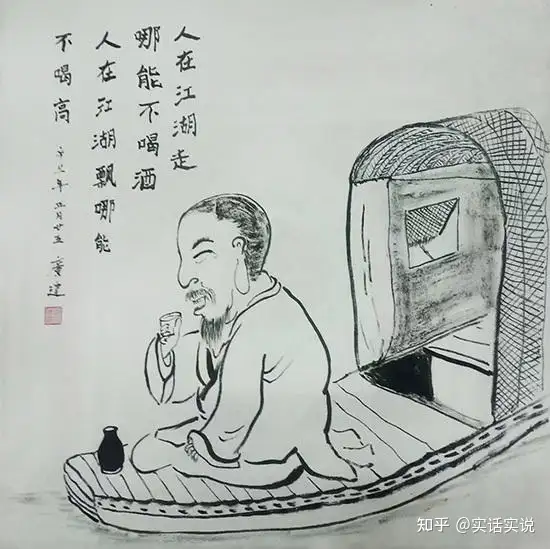 人在江湖走
哪能不喝酒
人在江湖飘哪能
不喝高 辛丑年 月廿五 建
知乎 @实话实说